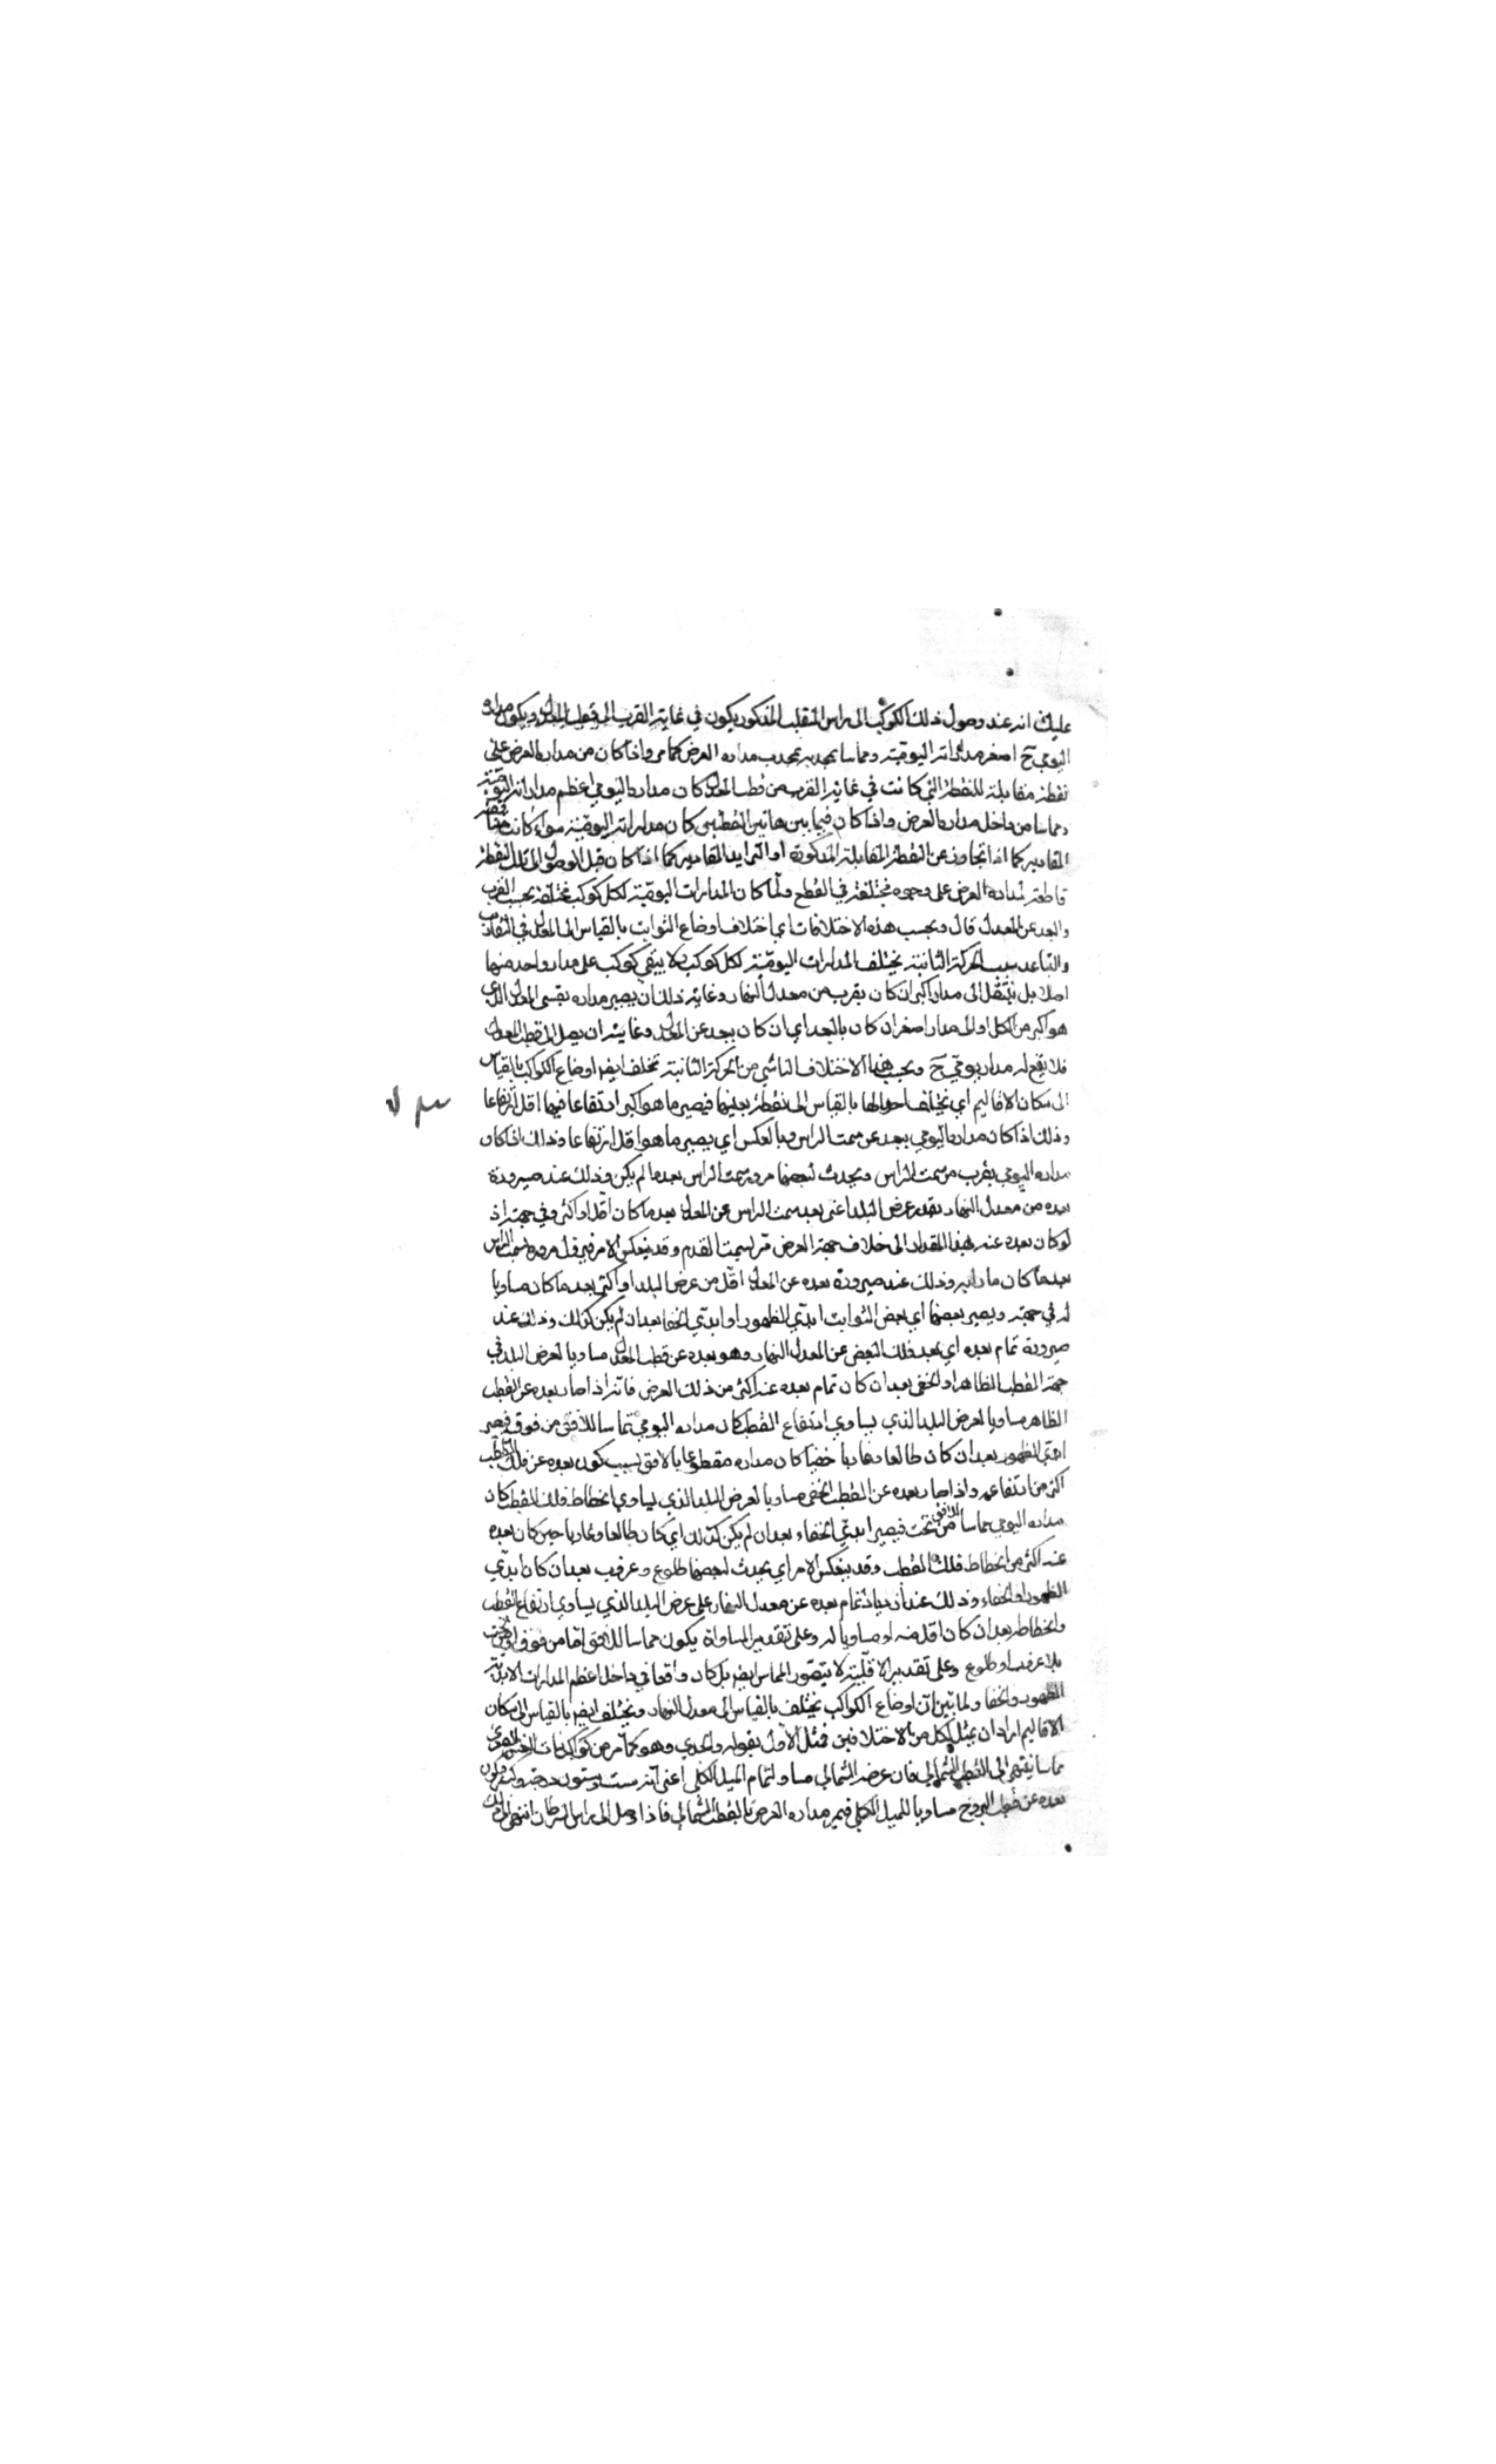 عليك انه عند وصول ذلك الكوكب الى راس المنقلب المذكور يكون في غاية القرب الى قطب المعدل ويكون مداره
اليومي ح اصغر مداراته اليومية ومماسا بمحدبه لمحدب مداره العرضي كما مر واذا كان من مداره العرضي على
نقطة مقابلة للنقطة التي كانت في غاية القرب من قطب المعدل كان مداره اليومي اعظم مداراته اليومية
ومماسا من داخل مداره العرضي واذا كان فيما بين هاتين النقطتين كان مداراته اليومية سواء كانت متناقصة
المقادير كما اذا تجاوز عن النقطة المقابلة المذكورة او المتزايد المقادير كما اذا كان قبل الوصول الى تلك النقطة
قاطعة لمداره العرضي على وجوه مختلفة في القطع ولما كان المدارات اليومية لكل كوكب مختلفة بحسب القرب
والبعد عن المعدل قال وبحسب هذه الاختلافات اي اختلاف اوضاع الثوابت بالقياس الى المعدل في التقارب
والتباعد بسبب الحركة الثانية يختلف المدارات اليومية لكل كوكب ولا يبقى كوكب على مدار واحد منهما
اصلا بل ينتقل الى مدار اكبر ان كان يقرب من معدل النهار وغاية ذلك ان يصير مداره نفس المعدل الذي
هو اكبر من الكل او الى مدار اصغر ان كان بالبعد اي ان كان يبعد عن المعدل وغايته ان يصل الى قطب المعدل
فلا يقع له مدار يومي ح وبحسب هذا الاختلاف الناشي من الحركة الثانية تختلف ايضا اوضاع الكواكب بالقياس
الى مكان الاقاليم اي يختلف احوالها بالقياس الى نقطة بعينها فيصير ما هو اكبر ارتفاعا فيها اقل ارتفاعا
وذلك اذا كان مداره اليومي يبعد عن سمت الراس وبالعكس اي يصير ما هو اقل ارتفاعا وذلك اذا كان
مداره اليومي يقرب من سمت الراس ويحدث لبعضها مرور بسمت الراس بعدما لم يكن وذلك عند صيرورة
بعده من معدل النهار بقدر عرض البلد اعني بعد سمت الراس عن المعدل بعد ما كان اقل او اكثر وفي جهته اذ
لو كان بعده عنه بهذا المقدار الى خلاف جهة العرض مر لسمت القدم وقد ينعكس الامر فيه قبل مروره بسمت الراس
بعدما كان مارا به وذلك عند صيرورة بعده عن المعدل اقل من عرض البلد او اكثر بعد ما كان مساويا
له في جهته ويصير بعضها اي بعض الثوابت ابدي الظهور او ابدي الخفا بعد ان لم يكن كذلك وذلك عند
صيرورة تمام بعده اي بعد ذلك البعض عن المعدل النهار وهو بعده عن قطب المعدل مساويا لعرض البلد في
جهة القطب الظاهر او الخفي بعد ان كان تمام بعده عنه اكثر من ذلك العرض فانه اذا صار بعده عن القطب
الظاهر مساويا لعرض البلد الذي يساوي ارتفاع القطب كان مداره اليومي مماسا للافق من فوق فيصير
ابدي الظهور بعد ان كان طالعا وغاربا خفيا كان مداره مقطوعا بالافق بسبب كون بعده عن ذلك القطب
اكثر من ارتفاعه واذا صار بعده عن القطب الخفي مساويا لعرض البلد الذي يساوي انحطاط ذلك القطب كان
مداره اليومي مماسا للافق من تحت فيصير ابدي الخفاء بعد ان لم يكن كذلك اي كان طالعا وغاربا حين كان بعده
عنه اكثر من انحطاط ذلك القطب وقد ينعكس الامر اي يحدث لبعضها طلوع وغروب بعد ان كان ابدي
الظهور او الخفاء وذلك عند ازدياد تمام بعده عن معدل النهار على عرض البلد الذي يساوي ارتفاع القطب
وانحطاطه بعد ان كان اقل منه او مساويا له وعلى تقدير المساواة يكون مماسا للافق اما من فوق او من تحت
بلا غروب او طلوع وعلى تقدير الاقلية لا يتصور المماس ايضا بل كان واقعا في داخل اعظم المدارات الابدية
الظهور والخفا ولما بين ان اوضاع الكواكب يختلف بالقياس الى معدل النهار ويختلف ايضا بالقياس الى مكان
الاقاليم اراد ان يمثل لكل من الاختلافين فمثل الاول بقوله والجدي وهو كما مر من كواكب بنات النعش الصغرى
مما سينتهي الى القطب الشمالي فان عرضه الشمالي مساو لتمام الميل الكلي اعني انه ست وستون درجة وكسر ويكون
بعده عن قطب البروج مساويا للميل الكلي فيمر مداره العرضي بالقطب الشمالي فاذا وصل الى راس السرطان انتهى الى ذلك